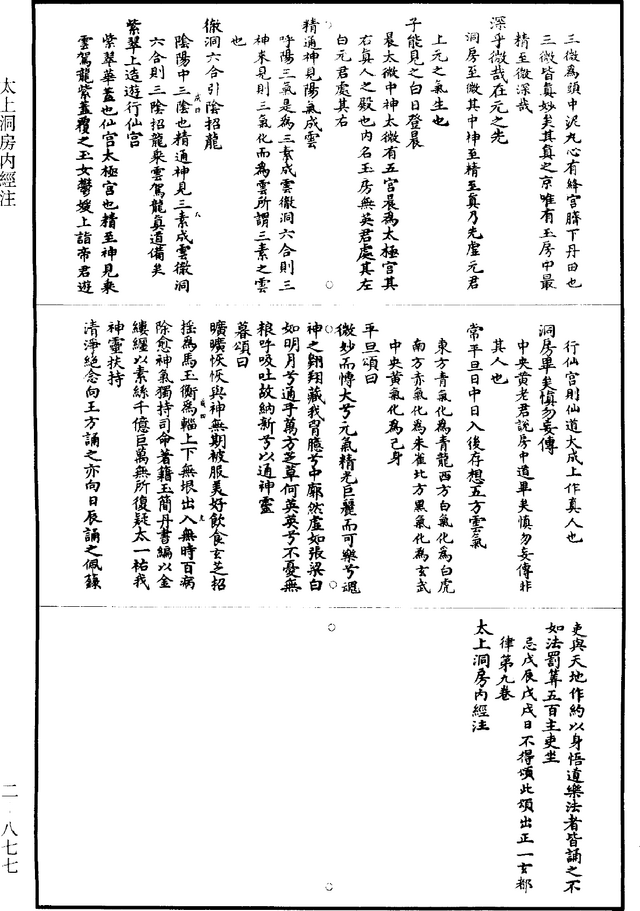 太上洞房內經注
二·八七七
三微為頭中泥丸心有絳宮臍下丹田也
三微皆真妙矣其真之京唯有玉房中最
精至微深哉
深乎微哉在元之先
洞房至微其中神至精至真乃先虛元君
上元之氣生也
子能見之白日登晨
晨太微中神太微有五宮晨為太極宮其
右真人之殿也內名玉房無英君處其左
白元君處其右
精通神見陽氣成雲
呼陽三氣是為三素成雲徹洞六合則三
神來見則三氣化而為雲所謂三素之雲
也
徹洞六合引陰招龍
陰陽中三陰也精通神見三素成雲徹洞
六合則三陰招龍乘雲駕龍真道備矣
紫翠上造遊行仙宮
紫翠華蓋也仙宮太極宮也精至神見乘
雲駕龍紫蓋覆之玉女鬱嫂上詣帝君遊
行仙宮則仙道大成上作真人也
洞房畢矣慎勿妄傳
中央黃老君說房中道畢矣慎勿妄傳非
其人也
常平旦日中日入後存想五方雲氣
東方青氣化為青龍西方白氣化為白虎
南方赤氣化為朱雀北方黑氣化為玄武
中央黃氣化為己身
平旦頌曰
微妙而博大兮元氣精光巨麗而可樂兮邈
神之翱翔藏我胷臆兮中廓然虛如張梁白
如明月兮通乎萬方芝草何英英兮不憂無
粮呼吸吐故納新兮以通神靈
暮頌曰
曠曠恢恢與神無期被服美好飲食玄芝招
搖為馬玉衡為輜上下無垠出入無時百病
除愈神氣獨持司命著籍玉簡丹書編以金
縷纏以素絲千億巨萬無所復疑太一祐我
神靈扶持
清淨絕念向王方誦之亦向日辰誦之佩籙
吏與天地作約以身悟道樂法者皆誦之不
如法罰筭五百主吏坐
忌戊辰戊戌日不得頌此頌出正一玄都
律第九卷
太上洞房內經注